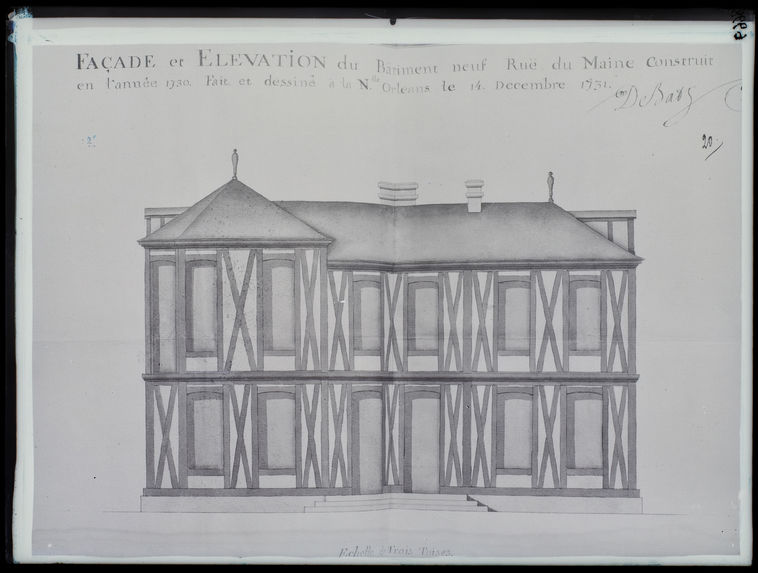 FAÇADE et ELEVATION du Bâtiment neuf Ruë du Maine Construit
en l'année 1730. Fait et dessiné à la N.lle Orleans le 14. Decembre 1731.
De Batz
20
Echelle de Trois Toises.